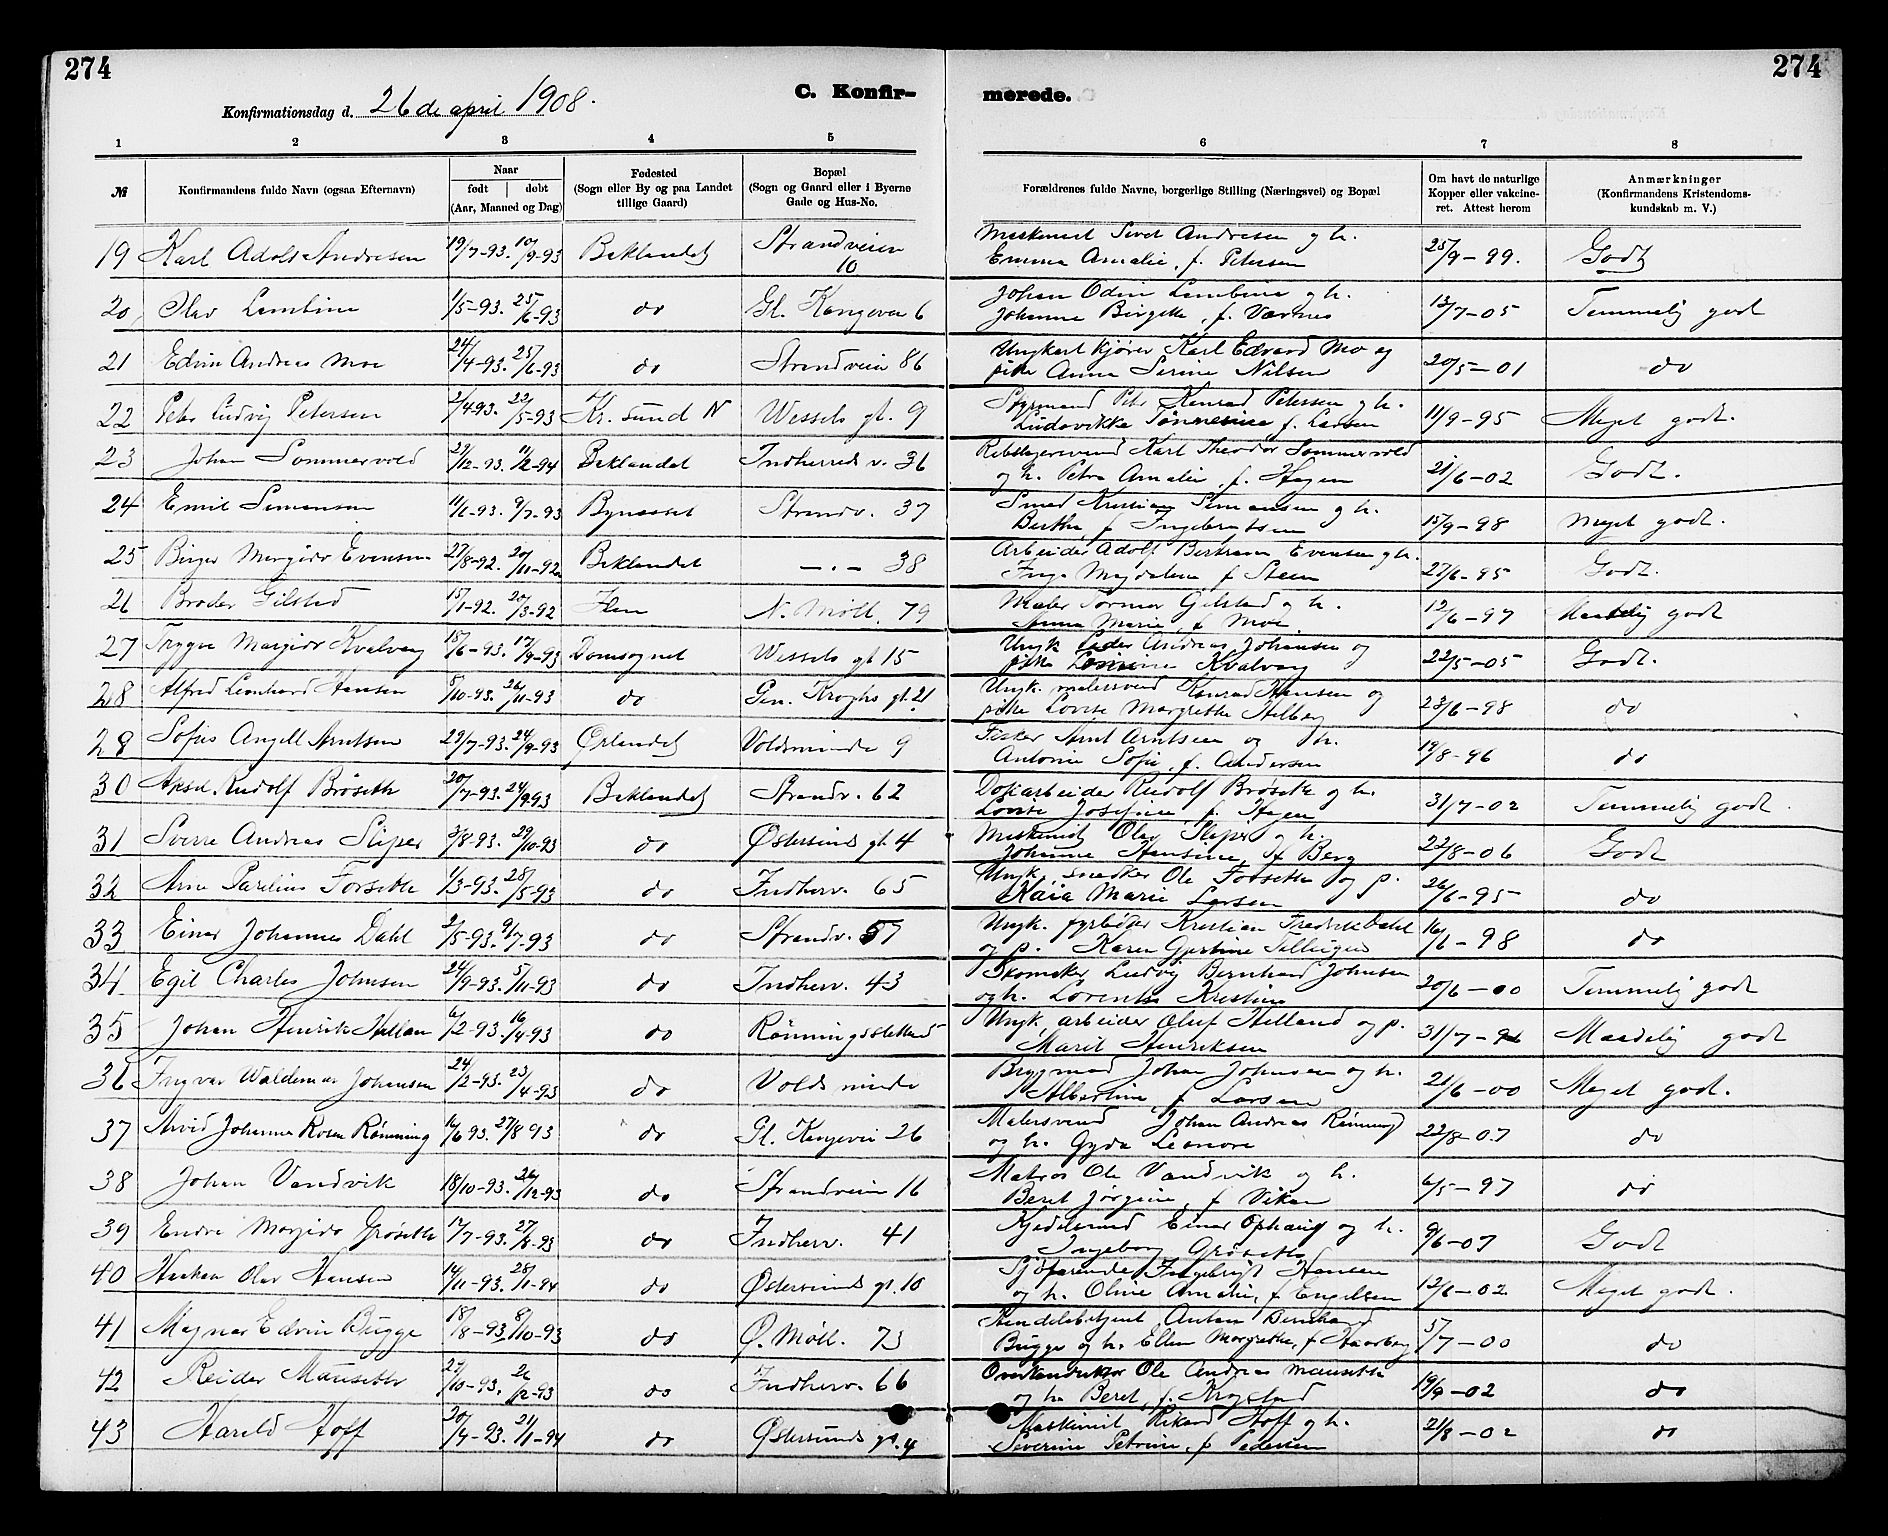 274
274
Konfirmationsdag d. 26 de april 1908.
C. Konfir-
merede.
1 2 3 4 5 6 7 8
№
Konfirmandens fulde Navn (ogsaa Efternavn)
Naar
født | døbt
(Aar, Maaned og Dag)
Fødested
(Sogn eller By og paa Landet
tillige Gaard)
Bopæl
(Sogn og Gaard eller i Byerne
Gade og Hus-No.
Forældrenes fulde Navne, borgerlige Stilling (Næringsvei) og Bopæl
Om havt de naturlige
Kopper eller vakcine-
ret. Attest herom
Anmærkninger
(Konfirmandens Kristendoms-
kundskab m. V.)
19 Karl Adolf Andresen 19/7-93. 10/9-93 Baklandet Strandveien 10 Maskinist Sivert Andresen og h. Emma Amalie, f. Petersen 25/9-99. Godt
20 Olav Lembine 1/5-93. 25/6-93 do Gl. Kongevei 6 Johan Odin Lembine og h. Johanna Birgitte, f. Værnes 13/7-05 Temmelig godt
21 Edvin Andreas Moe 24/4-93. 25/6-93 do Strandveien 86 Ungkarl kjører Karl Edvard Mo og pike Anna Serine Nilsen 20/5-01 do
22 Peter Ludvig Petersen 2/4-93. 22/5-93 Kr. sund N Wessels gt. 9 Styrmand Petr Konrad Petersen og h. Ludovikke Tønnesine f. Larsen 11/9-95 Meget godt.
23 Johan Sommervold 29/12-93. 11/2-94 Baklandet Indherreds v. 36 Rebslagersvend Karl Theodor Sommervold og h. Petra Amalie, f. Hagen 21/6-02 Godt.
24 Emil Simonsen 11/6-93. 9/7-93 Bynesset Strandv. 37 Smed Kristian Simonsen og h. Berthe f. Ingebrigtsen 15/9-98 Meget godt.
25 Birger Margido Evensen 27/8-92. 20/11-92 Baklandet -.- 38 Arbeider Adolf Bertram Evensen og h. Inga Magdalena f. Steen 27/6-95 Godt.
26 Broder Gilstad 15/1-92. 20/3-92 Ilen N. Møll. 79 Maler Tormor Gilstad og h. Anna Marie, f. Moe 12/6-97 Maadelig godt
27 Trygve Margido Kvalvaag 15/6-93. 17/9-93 Domsognet Wessels gt 15 Ungk. Andreas Johansen og pike Kvalvaag 22/5-05 Godt.
28 Alfred Leonhard Hansen 8/10-93. 26/11-93 do Gen. Kroghs gt. 21 Ungk. malersvend Konrad Hansen og pike Lovise Margrethe Helberg 23/6-98 do
28 Sofus Angell Arntsen 29/7-93. 24/9-93 Ørlandet Voldsminde 9 Fisker Arnt Arntsen og h. Antonie Sofie, f. Andersen 19/8-96 do
30 Aksel Rudolf Brøseth 20/7-93. 24/9-93 Baklandet Strandv. 62 Dokarbeider Rudolf Brøseth og h. Lovise Josefine, f. Hagen 31/7-02 Temmelig godt.
31 Sverre Andreas Sliper 3/8-93. 29/10-93 do Østersunds gt. 4 Maskinist Olav Sliper og h. Johanna Hansine, f. Berg 22/8-06 Godt
32 Arne Parelius Forseth 1/3-93. 28/5-93 do Indherv. 65 Ungk. snedker Ole Forseth og p. Kaia Marie Larsen 26/6-95 do
33 Einar Johannes Dahl 2/5-93. 9/7-93 do Strandv. 57 Ungk. fyrbøter Kristian Fredrik Dahl og p. Karen Gjertine 16/6-98 do
34 Egil Charles Johnsen 24/9-93. 5/11-93 do Indherv. 43 Skomaker Ludvig Bernhard Johnsen og h. Lorentse Kristine 20/6-00 Temmelig godt
35 Johan Henrik Helland 6/2-93. 16/4-93 do Rønningsletten Ungk. arbeider Oluf Helland og p. Marit Henriksen 31/7- Maadelig godt
36 Ingvar Waldemar Johansen 24/2-93. 23/4-93 do Voldsminde Brygmand Johan Johansen og h. Albertine f. Larsen 21/6-00 Meget godt.
37 Arvid Johannes Rosen Rønning 16/6 93. 27/8 93 do Gl. Kongevei 26 Malersvend Johan Andreas Rønning og h. Gyda Leonore 22/8-07 do
38 Johan Vandvik 18/10-93. 26/12-93 do Strandveien 16 Matros Ole Vandvik og h. Beret Jørgine, f. Viken 6/5-97 do
39 Endre Margido Grøseth 17/7-93. 27/8-93 do Indherv. 41 Kjedelsmed Einar Ophaug og h. Ingeborg Grøseth 9/6-07 Godt
40 Haakon Olav Hansen 14/11-93. 28/1-94 do Østersunds gt. 10 Sjøfarende Ingebrigt Hansen og h. Oline Amalie, f. Engelsen 12/6-02 Meget godt.
41 Magnar Edvin Bugge 18/8-93. 8/10-93 do Ø. Møll. 73 Handelsbetjent Anton Bernhard Bugge og h. Ellen Margrethe, f. Haarberg 5/7-00 do
42 Reider Mauseth 27/10-93. 26/12-93 do Indherv. 66 Overkonduktør Ole Andreas Mauseth og h. Beret, f. Krogstad 19/9-02 do
43 Harald Hoff 20/9-93. 21/1-94 do Østersunds gt. 4 Maskinist Rikard Hoff og h. Severine Petrine, f. Pedersen 21/8-02 do